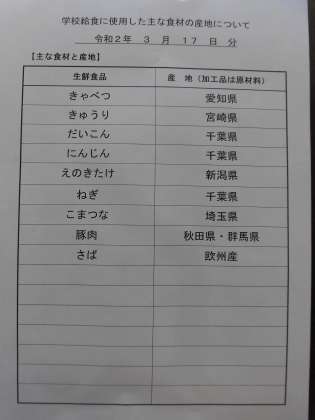 学校給食に使用した主な食材の産地について
令和２年 ３ 月 １７ 日 分
【主な食材と産地】
生鮮食品 産 地（加工品は原材料）
きゃべつ 愛知県
きゅうり 宮崎県
だいこん 千葉県
にんじん 千葉県
えのきたけ 新潟県
ねぎ 千葉県
こまつな 埼玉県
豚肉 秋田県・群馬県
さば 欧州産